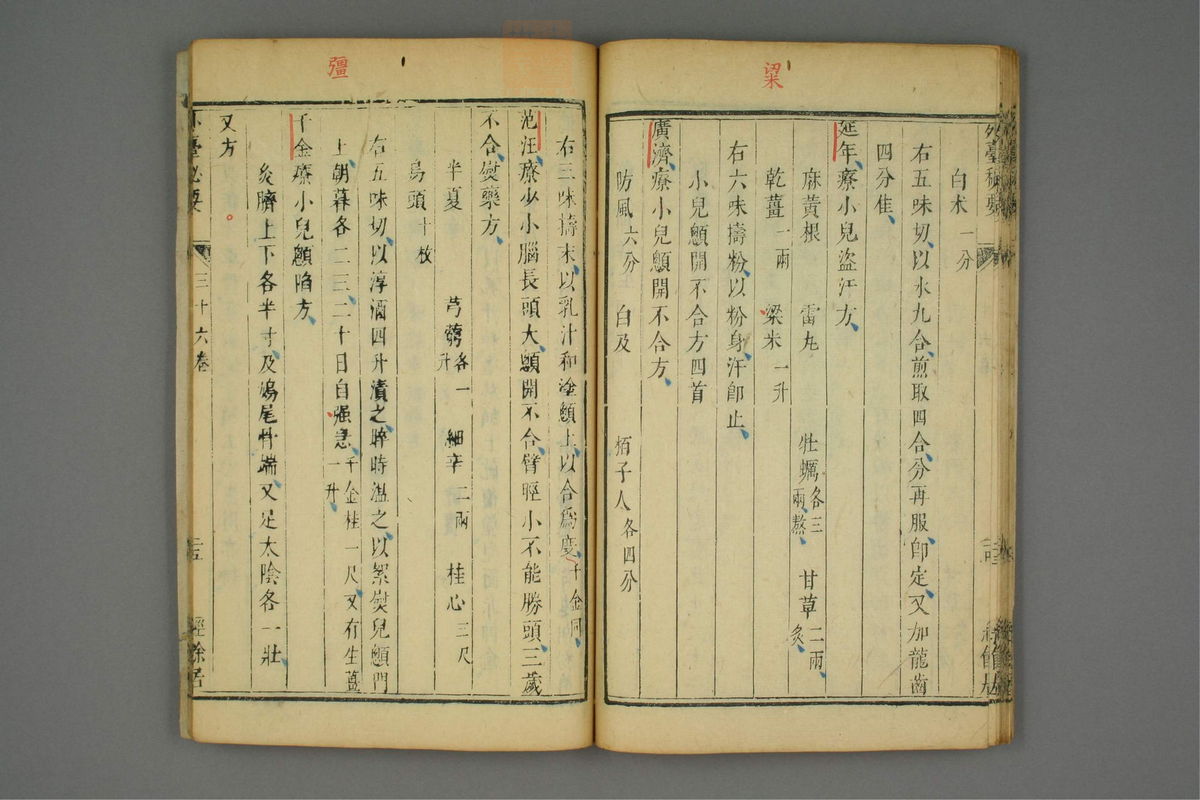 粱
白术一分
右五味切以水九合煎取四合分再服卽定又加龍齒
四分隹
延年療小兒盜汗方
麻黃根 雷丸 牡蠣各三兩熬 甘草二兩炙
乾薑一兩 梁米一升
右六味擣粉以粉身汗卽止
小兒顖開不合方四首
廣濟療小兒顖開不合方
防風六分 白及 栢子人各四分
彊
右三味擣末以乳汁和塗顖上以合爲度千金同
范汪療少小腦長頭大顖開不合臂脛小不能勝頭三歲
不合熨藥方
半夏 芎藭各一升 細辛二兩 桂心三尺
烏頭十枚
右五味切以淳酒四升漬之晬時溫之以絮熨兒顖門
上朝暮各二三二十日自强急千金桂一尺又有生薑一升
千金療小兒顖陷方
灸臍上下各半寸及鳩尾骨端又足太陰各一壯
又方
外臺秘要 三十六卷 二十五 經餘居